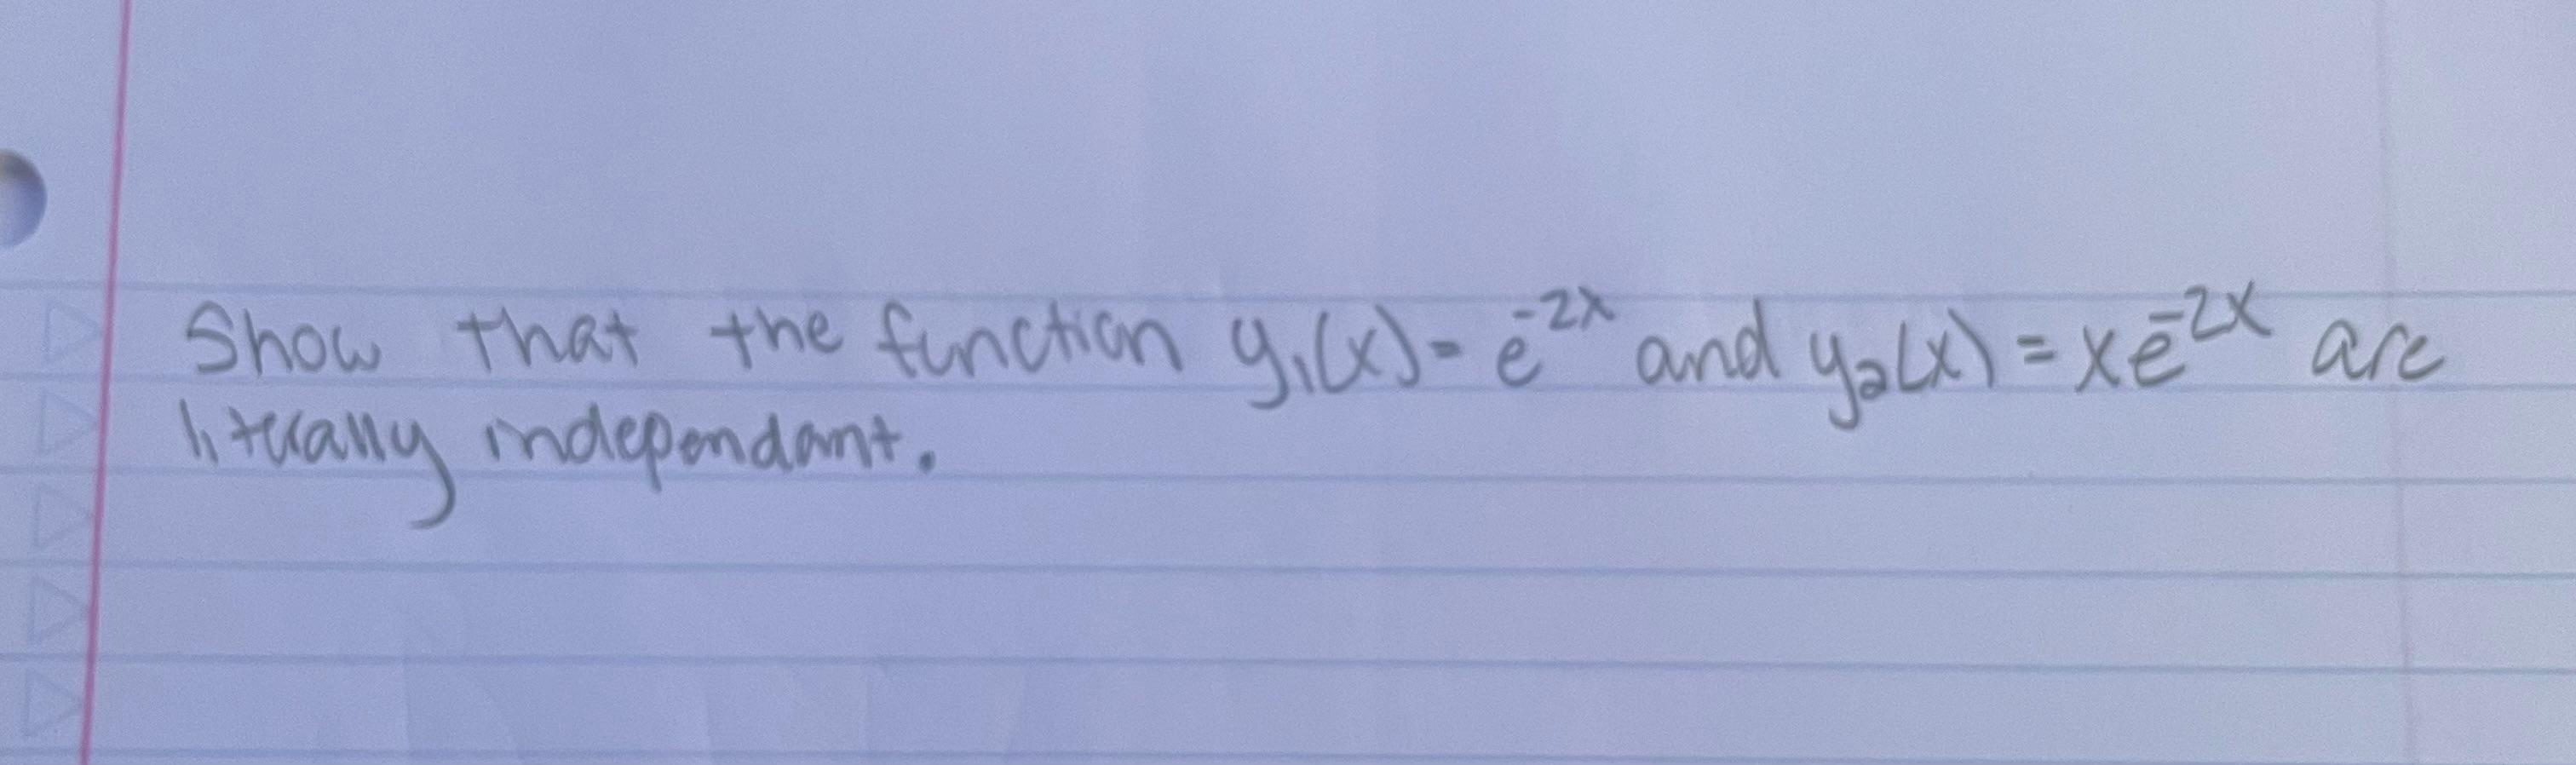 Show that the function y₁(x) = e⁻²ˣ and y₂(x) = xe⁻²ˣ are
literally independant.